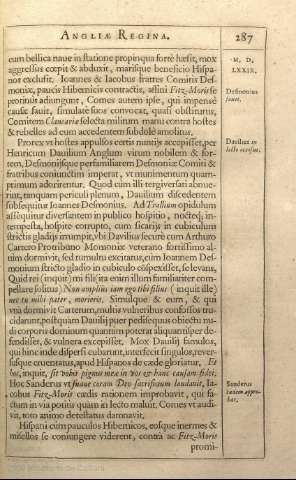 ANGLIÆ REGINA. 287
cum bellica naue in statione propinqua fortè hæsit, mox
aggressus cœpit & abduxit, marisque beneficio Hispa-
nos exclusit. Ioannes & Iacobus fratres Comitis Des-
moniæ, paucis Hibernicis contractis, affini Fitz-Moris se
protinùs adiungunt, Comes autem ipse, qui impensè
causæ fauit, simulatè suos conuocat, quasi obstiturus,
Comitem Clanricæ selecta militum manu contra hostes
& rebelles ad eum accedentem subdolè amolitus.
Prorex vt hostes appulsos certis nuntijs accepisset, per
Henricum Dauilium Anglum virum nobilem & for-
tem, Desmonijsque perfamiliarem Desmoniæ Comiti &
fratribus coniunctim imperat, vt munimentum quam-
primùm adorirentur. Quod cum illi tergiuersati abnue-
rint, tanquam periculi plenum, Dauilium discedentem
subsequitur Ioannes Desmonius. Ad Trallium opidulum
assequitur diuersantem in publico hospitio, nocteq; in-
tempesta, hospite corrupto, cum sicarijs in cubiculum
strictis gladijs irrumpit, vbi Dauilius securè cum Arthuro
Cartero Protribuno Momoniæ veterano fortissimo al-
tùm dormiuit, sed tumultu excitatus, cùm Ioannem Des-
monium stricto gladio in cubiculo cõspexisset, se leuans,
Quid rei (inquit) mi fili; (ita enim illum familiariter com-
pellare solitus) Non ampliùs iam ego tibi filius (inquit ille)
nec tu mihi pater, morieris. Simulque & eum, & qui
vnà dormiuit Carterum, multis vulneribus confossos tru-
cidarunt, postquam Dauilij puer pedissequus obiectu nu-
di corporis dominum quantum poterat aliquantisper de-
fendisset, & vulnera excepisset. Mox Dauilij famulos,
qui hinc inde dispersi cubarunt, interfecit singulos, reuer-
susque cruentatus, apud Hispanos de cæde gloriatur, Et
hæc, inquit, sit vobis pignus meæ in vos & hanc causam fidei.
Hoc Sanderus vt suaue coram Deo sacrificium laudauit, Ia-
cobus Fitz-Moris cædis rationem improbauit, qui fa-
ctum in via potiùs quàm in lecto maluit. Comes vt audi-
uit, toto animo detestatus damnauit.
Hispani cùm pauculos Hibernicos, eosque inermes &
misellos se coniungere viderent, contra ac Fitz-Moris
promi-
M. D.
LXXIX.
Desmonius
fauet.
Dauilius in
lecto occisus.
Sanderus
cædem appro-
bat.